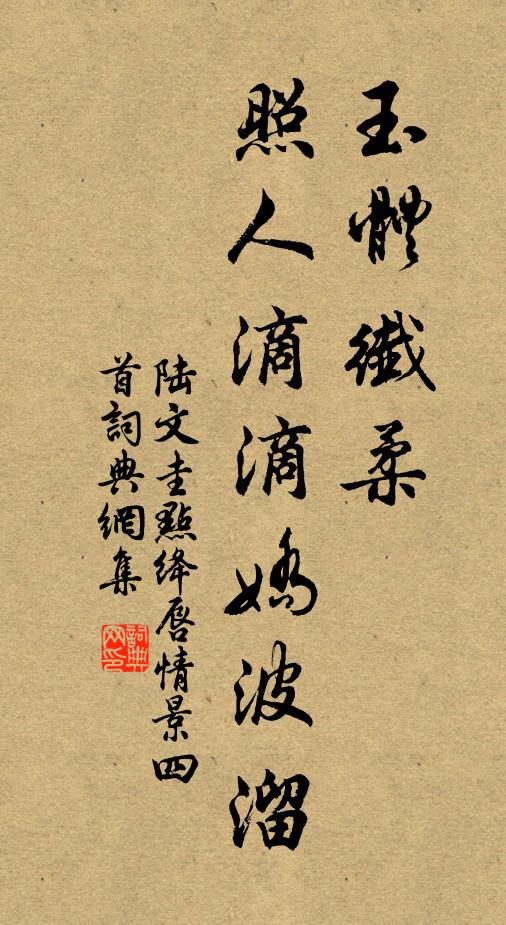 玉體纖柔
照人滴滴嬌波溜
陸文圭點絳唇情景四
首詞典網集
詞典
网印